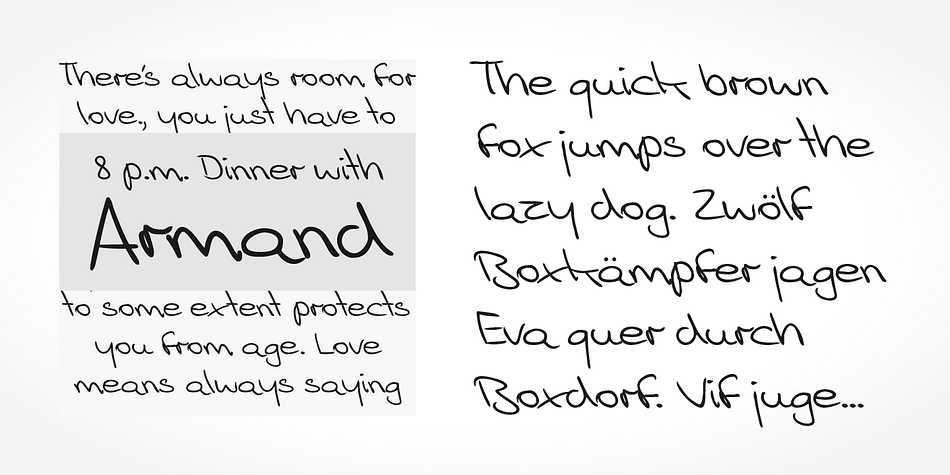 There's always room for
love., you just have to
8 p.m. Dinner with
Armand
to some extent protects
you from age. Love
means always saying
The quick brown
fox jumps over the
lazy dog. Zwölf
Boxkämpfer jagen
Eva quer durch
Boxdorf. Vif juge...